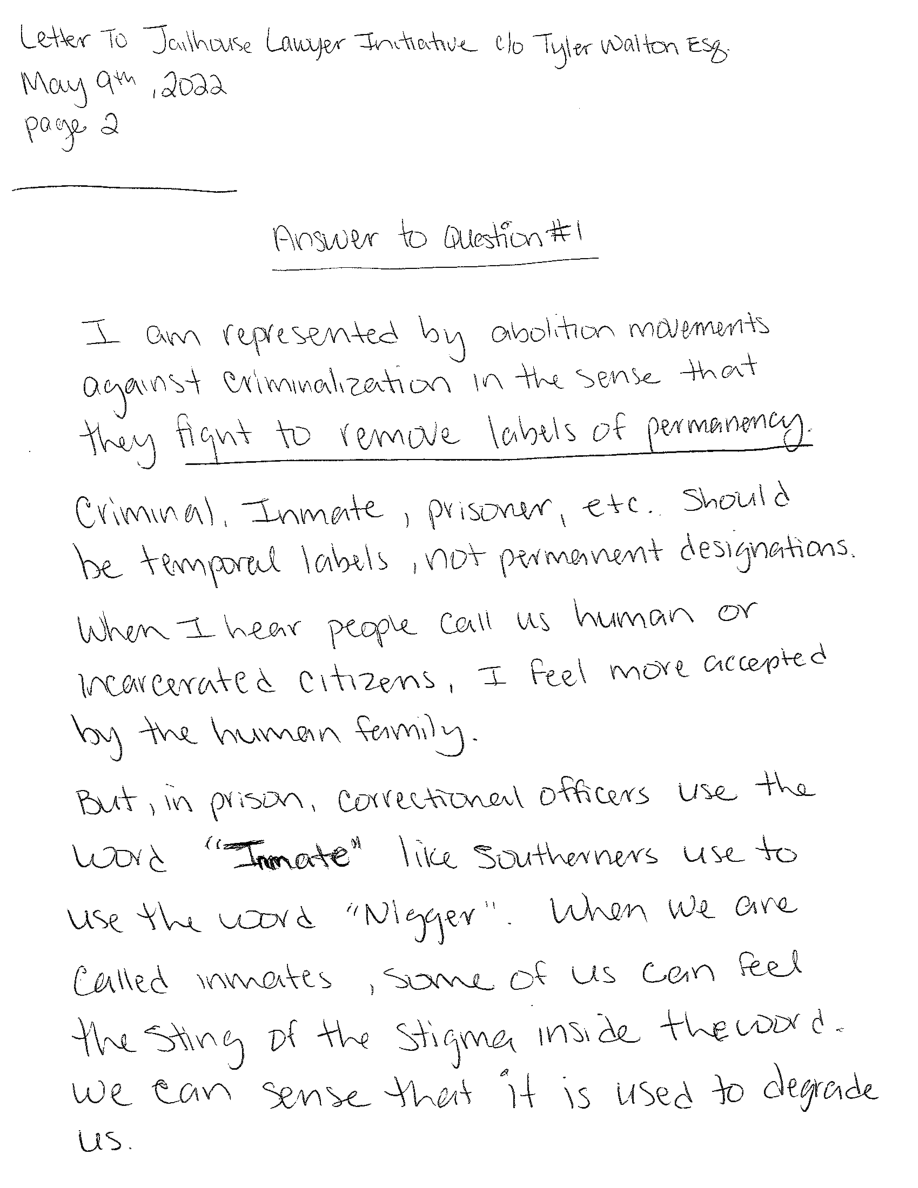 Letter To Jailhouse Lawyer Initiative c/o Tyler Walton Esq.
May 9th, 2022
page 2
Answer to Question #1
I am represented by abolition movements
against criminalization in the sense that
they fight to remove labels of permanency.
Criminal, Inmate, prisoner, etc. Should
be temporal labels, not permanent designations.
When I hear people call us human or
incarcerated citizens, I feel more accepted
by the human family.
But, in prison, correctional officers use the
word "Inmate" like Southerners use to
use the word "Nigger". When we are
called inmates, some of us can feel
the sting of the stigma inside the word.
we can sense that it is used to degrade
us.